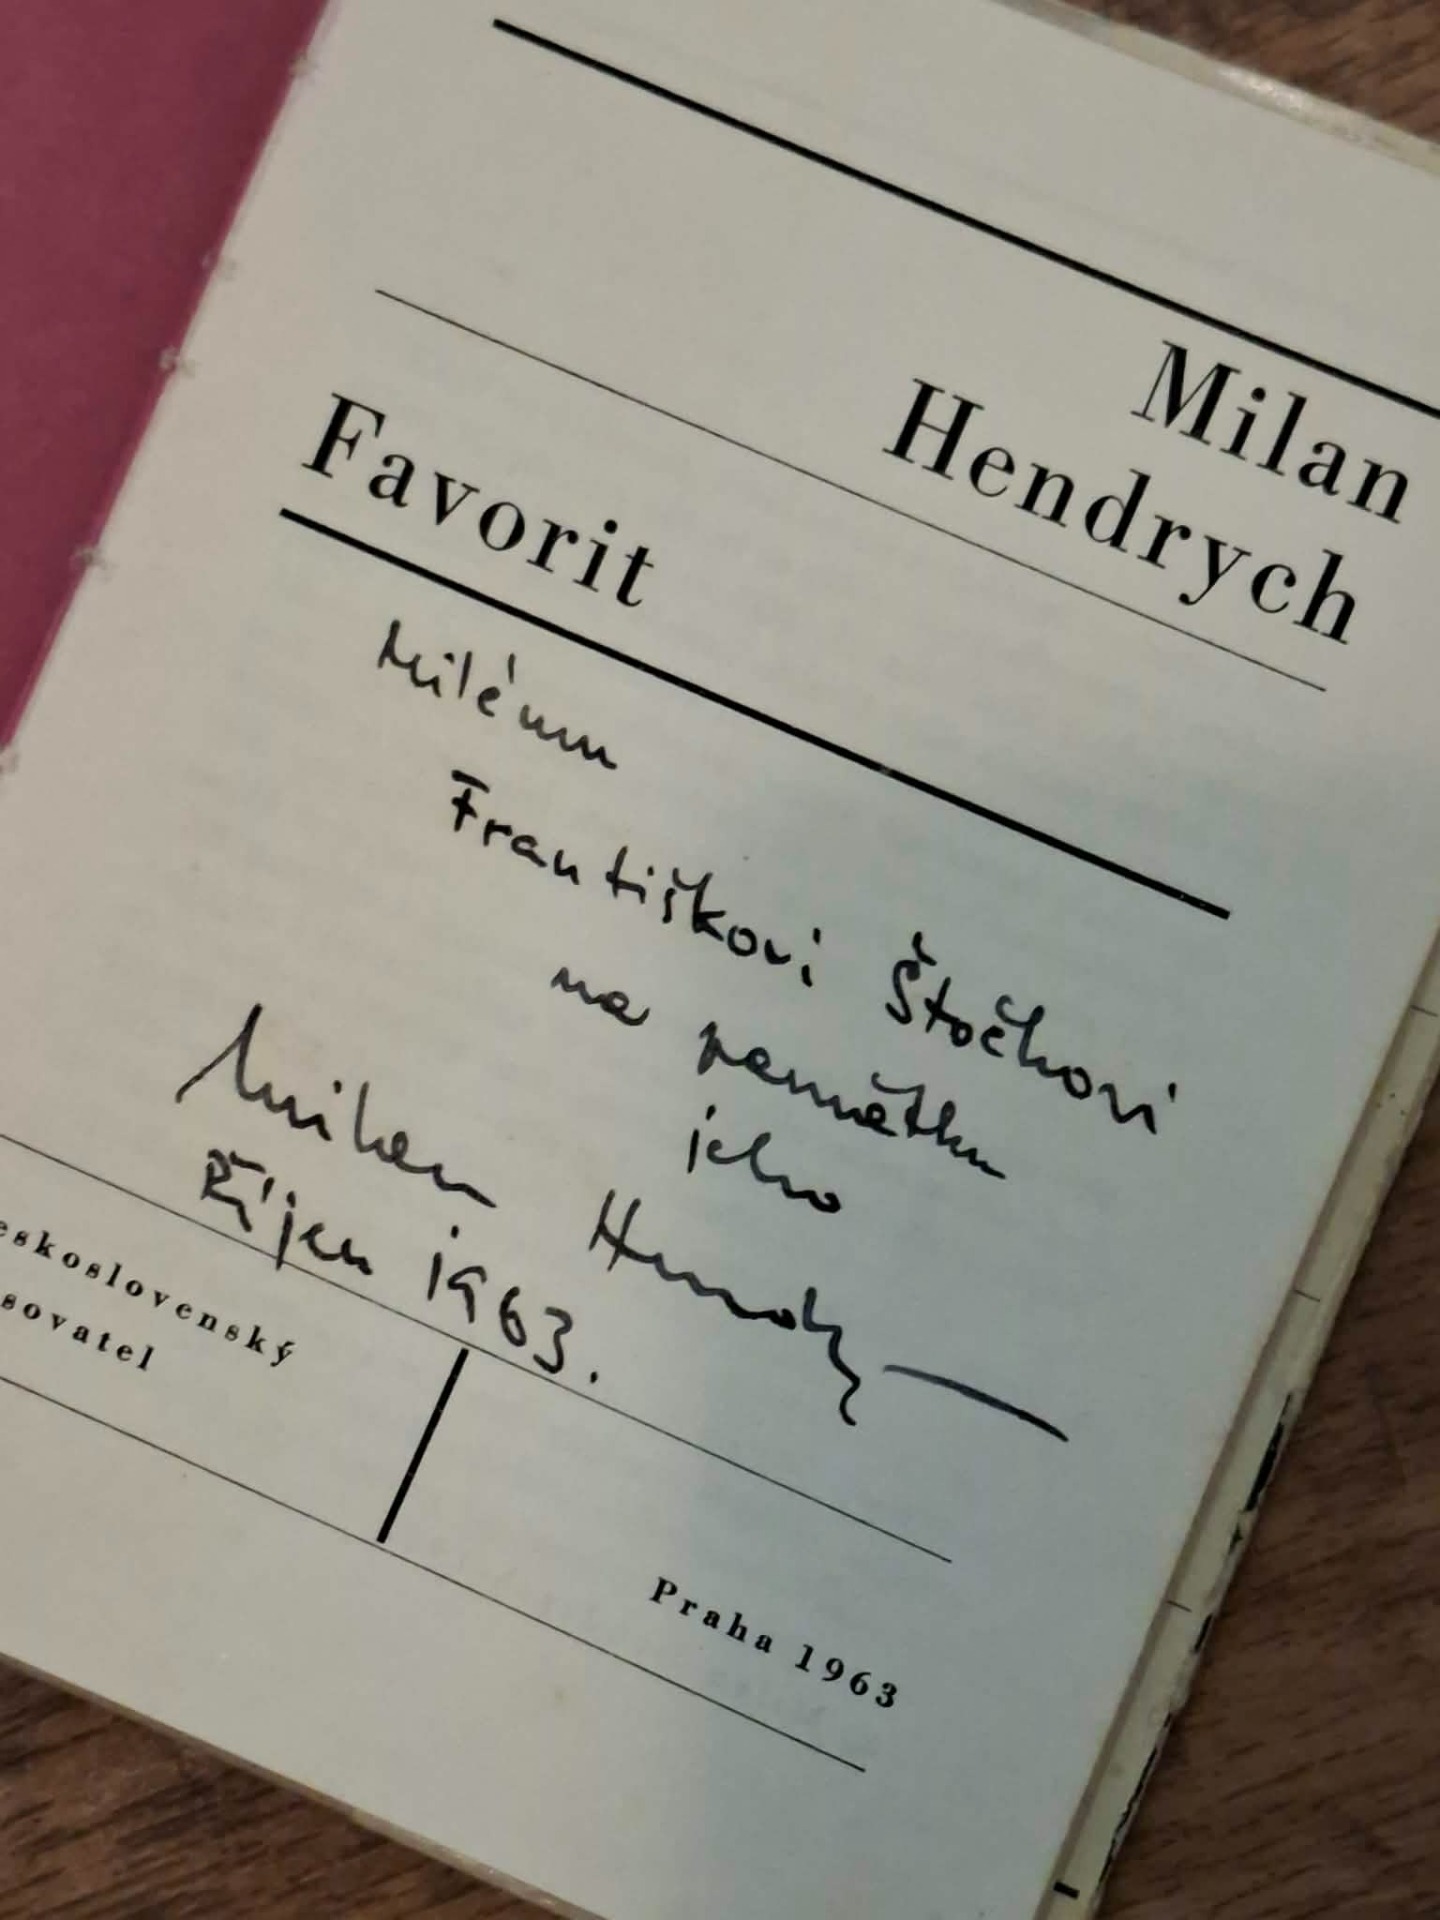 Milan
Hendrych
Favorit
Milému
Františkovi Štočkovi
na památku
jeho
Milan Hendrych
Říjen 1963.
eskoslovenský
sovatel
Praha 1963